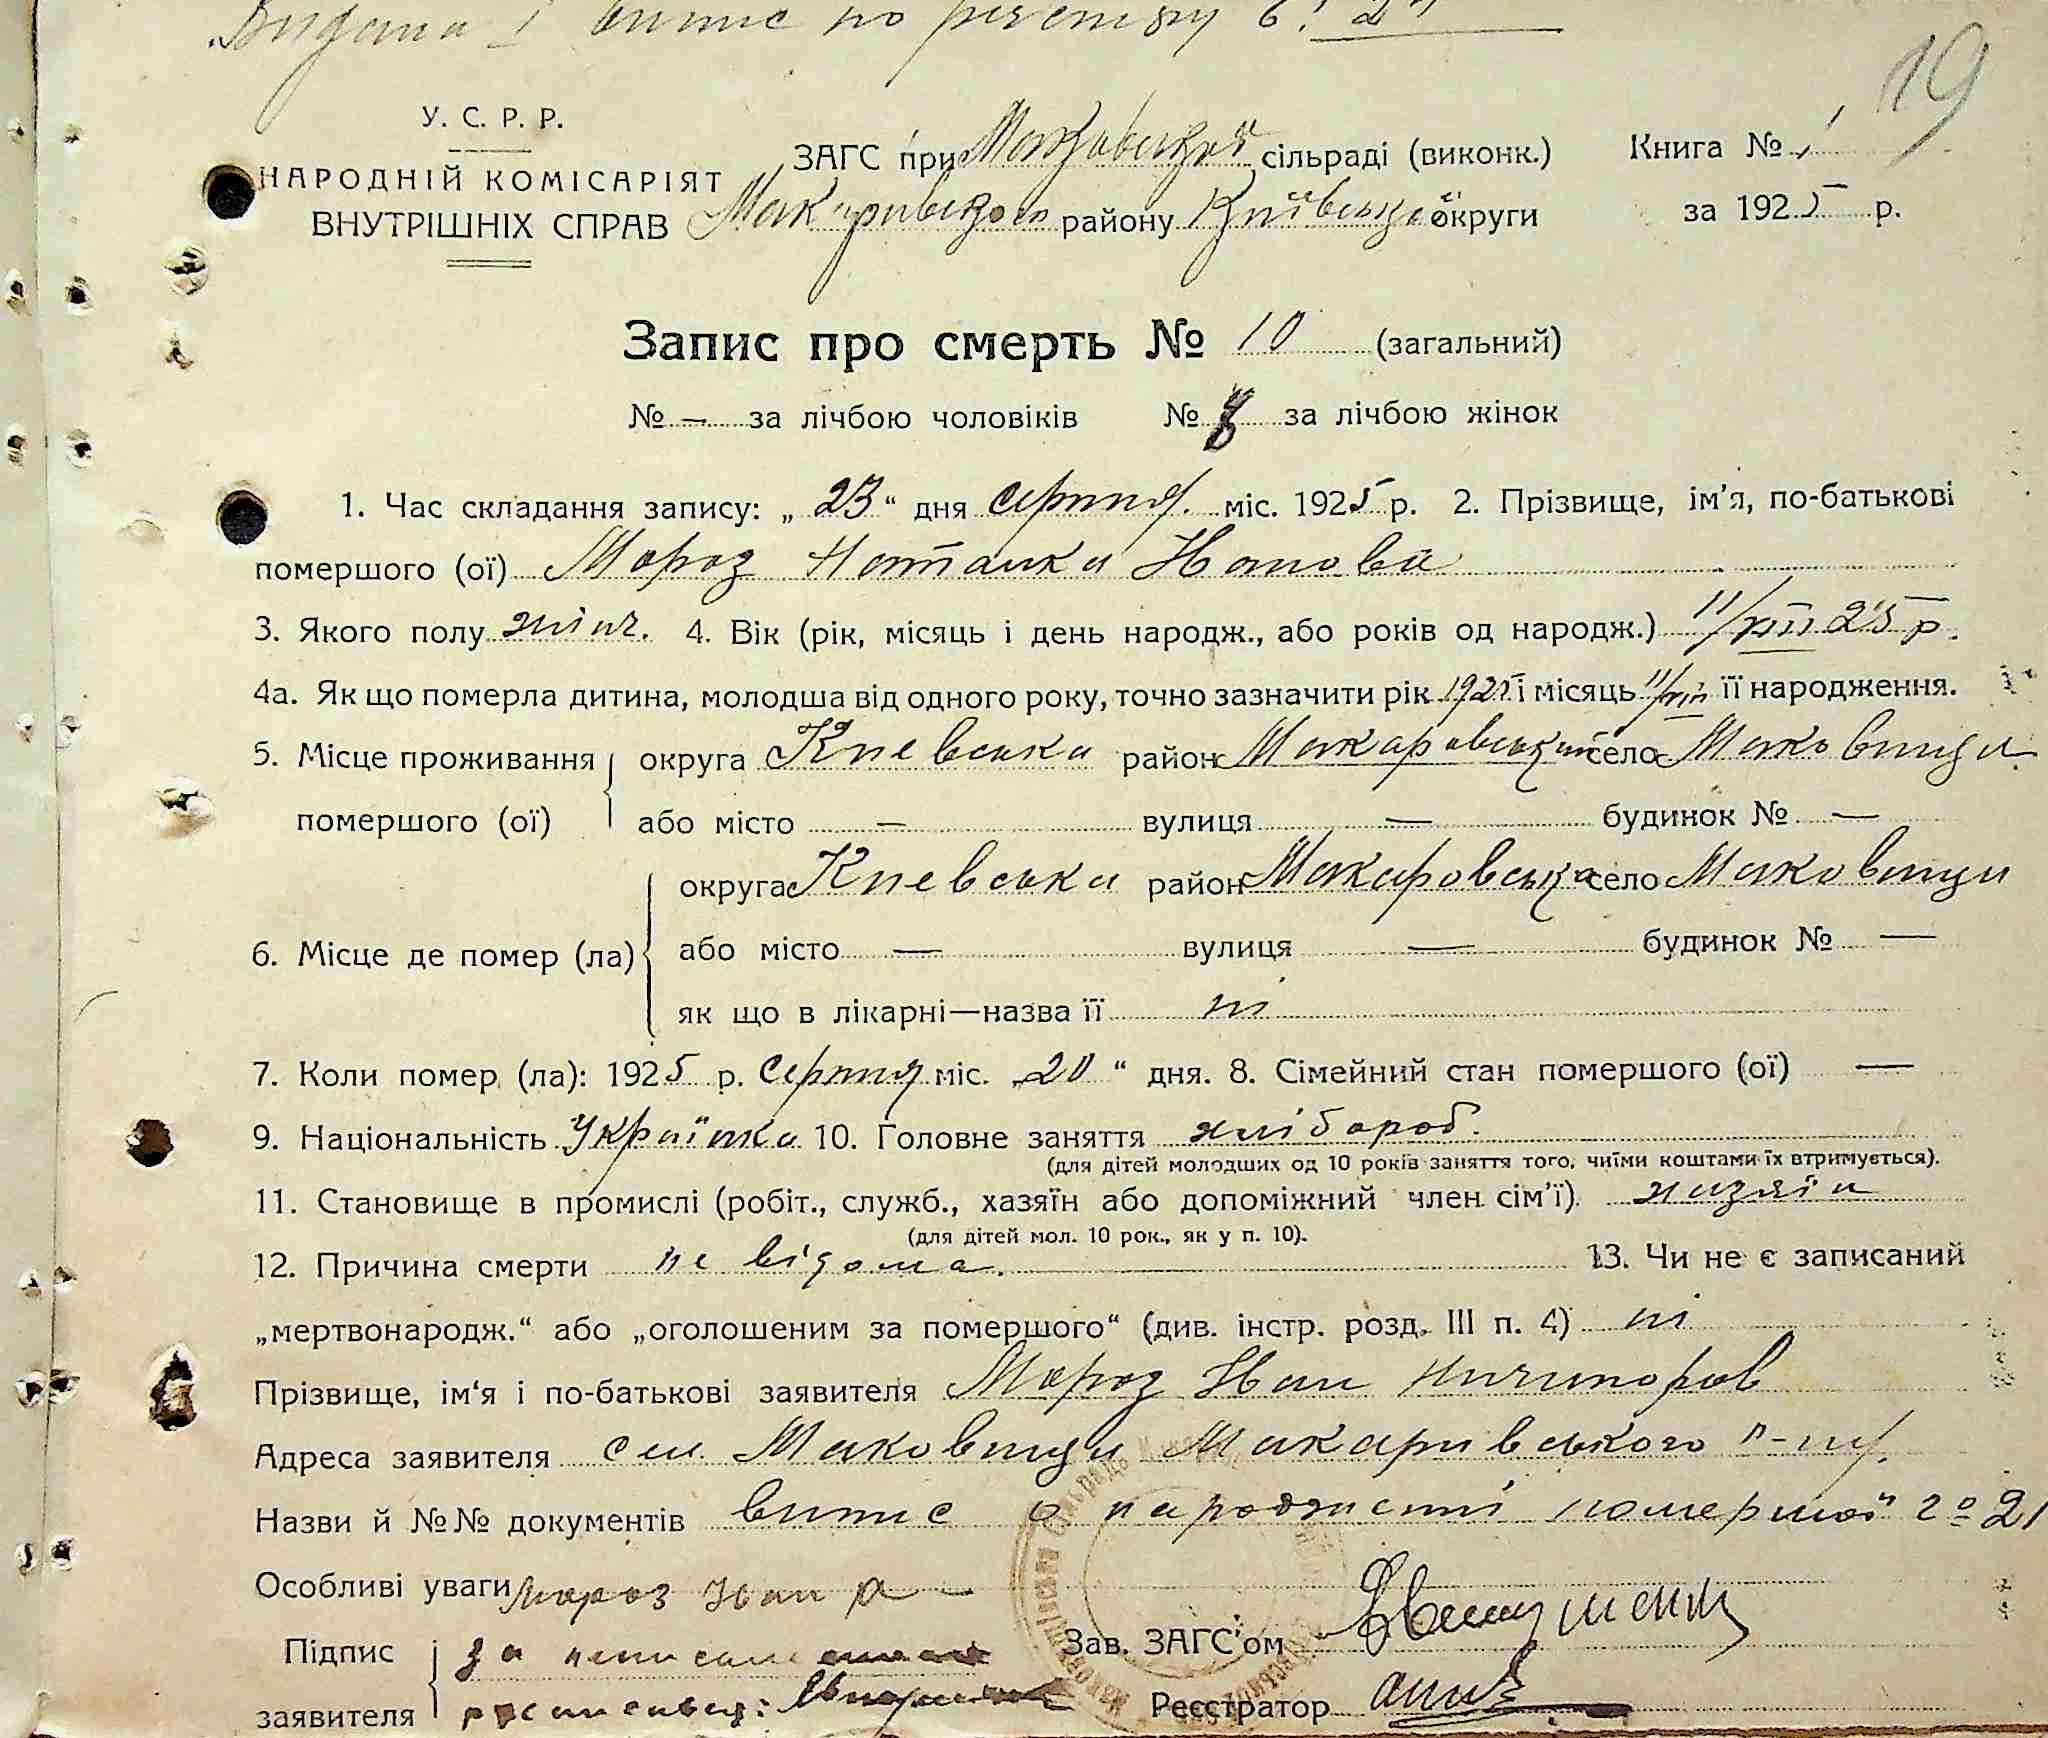 Видана 1 витис по реєстру
19
У. С. Р. Р.
НАРОДНІЙ КОМІСАРІЯТ
ВНУТРІШНІХ СПРАВ
ЗАГС при сільраді (виконк.)
Макарівського району Київської округи
Книга № 1
за 1925 р.
Запис про смерть № 10 (загальний)
№ — за лічбою чоловіків № за лічбою жінок
1. Час складання запису: „ 23 “ дня серпня міс. 1925 р. 2. Прізвище, ім'я, по-батькові
помершого (ої) Мороз Наталка Іванова
3. Якого полу жіноч. 4. Вік (рік, місяць і день народж., або років од народж.) 11/VIII 25 р.
4а. Як що померла дитина, молодша від одного року, точно зазначити рік 1925 і місяць 11/VIII її народження.
5. Місце проживання округа Киевська район Макаровський село Маковищи
помершого (ої) або місто — вулиця — будинок № —
округа Киевська район Макаровська село Маковищи
6. Місце де помер (ла) або місто — вулиця — будинок № —
як що в лікарні—назва її ні
7. Коли помер (ла): 1925 р. серпня міс. „ 20 “ дня. 8. Сімейний стан помершого (ої) —
9. Національність Українка 10. Головне заняття хлібороб.
(для дітей молодших од 10 років заняття того, чиїми коштами їх втримується).
11. Становище в промислі (робіт., служб., хазяїн або допоміжний член сім'ї) хазяїн
(для дітей мол. 10 рок., як у п. 10).
12. Причина смерти не відома. 13. Чи не є записаний
„мертвонародж.“ або „оголошеним за помершого“ (див. інстр. розд. III п. 4) ні
Прізвище, ім'я і по-батькові заявителя Мороз Іван Ничипоров
Адреса заявителя сел. Маковищи Макарівського р-ну.
Назви й №№ документів витис о народженні помершої № 21
Особливі уваги Мороз Іван а —
Підпис за неписьменого
заявителя росписався:
Зав. ЗАГС'ом
Реєстратор